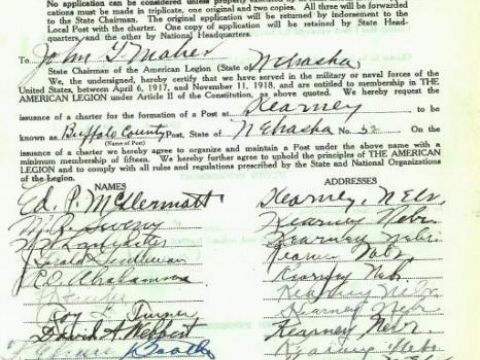 No application can be considered unless properly executed
cations must be made in triplicate, one original and two copies. All three will be forwarded
to the State Chairman. The original application will be returned by indorsement to the
Local Post with the charter. One copy of application will be retained by State Head-
quarters, and the other by National Headquarters.
To John G. Maher
State Chairman of the American Legion (State of Nebraska
, the undersigned, hereby certify that we have served in the military or naval forces of the
United States, between April 6, 1917, and November 11, 1918, and are entitled to membership in THE
AMERICAN LEGION under Article II of the Constitution, as above quoted. We hereby request the
issuance of a charter for the formation of a Post at Kearney to be
known as Buffalo County Post, State of Nebraska No. 52 On the
(Name of Post)
issuance of a charter we hereby agree to organize and maintain a Post under the above name with a
minimum membership of fifteen. We hereby further agree to uphold the principles of THE AMERICAN
LEGION and to comply with all rules and regulations prescribed by the State and National Organizations
of the Legion.
NAMES ADDRESSES
Ed. P. McDermott Kearney, Nebr.
Kearney Nebr
Kearney Nebr.
Kearney Nebr
Kearney Nebr.
Kearney Nebr.
Roy L. Turner Kearney Nebr
David A. Webbert Kearney Nebr.
Kearney Nebr